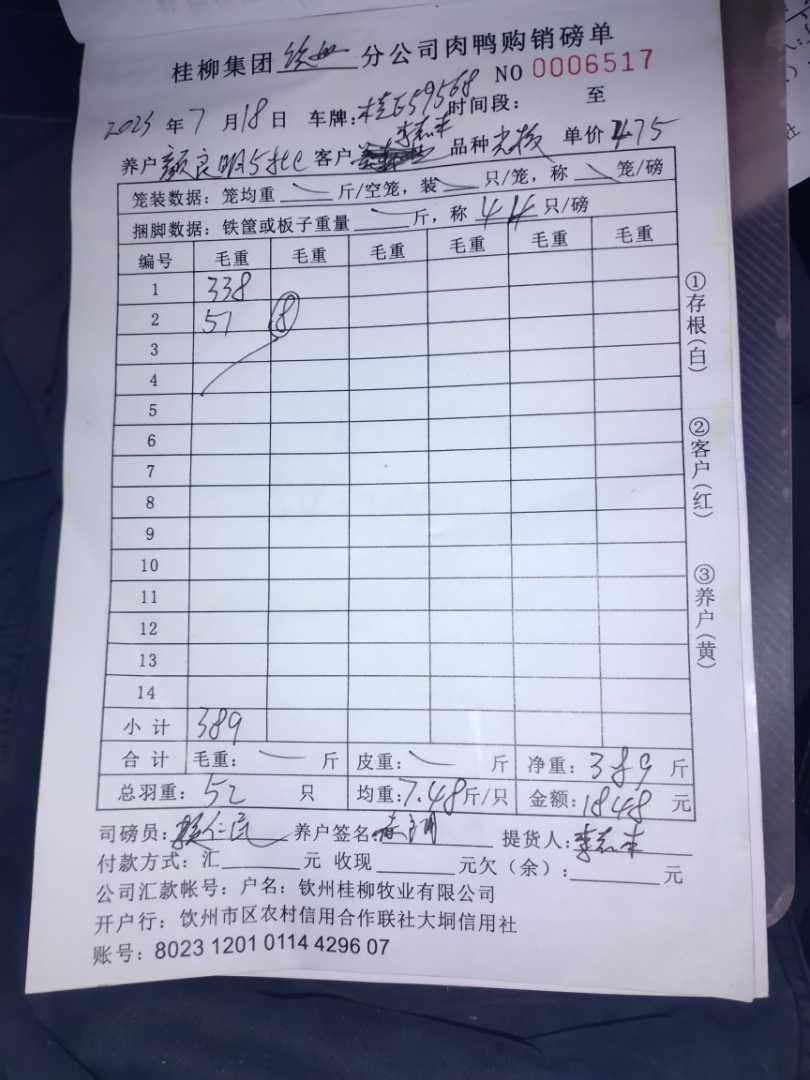 桂柳集团 钦州 分公司肉鸭购销磅单
NO 0006517
2023 年 7 月 18 日 车牌: 桂E59568 时间段: 至
养户 颜良明5批 客户 李志丰 品种 单价 4.75
笼装数据: 笼均重 斤/空笼, 装 只/笼, 称 笼/磅
捆脚数据: 铁筐或板子重量 斤, 称 44 只/磅
编号 毛重 毛重 毛重 毛重 毛重 毛重
1 338
2 51 8
3
4
5
6
7
8
9
10
11
12
13
14
小 计 389
合 计 毛重: 斤 皮重: 斤 净重: 389 斤
总羽重: 52 只 均重: 7.48 斤/只 金额: 1848 元
司磅员: 养户签名: 提货人:
付款方式: 汇 元 收现 元欠 (余): 元
公司汇款帐号: 户名: 钦州桂柳牧业有限公司
开户行: 饮州市区农村信用合作联社大垌信用社
账号: 8023 1201 0114 4296 07
①存根(白)
②客户(红)
③养户(黄)